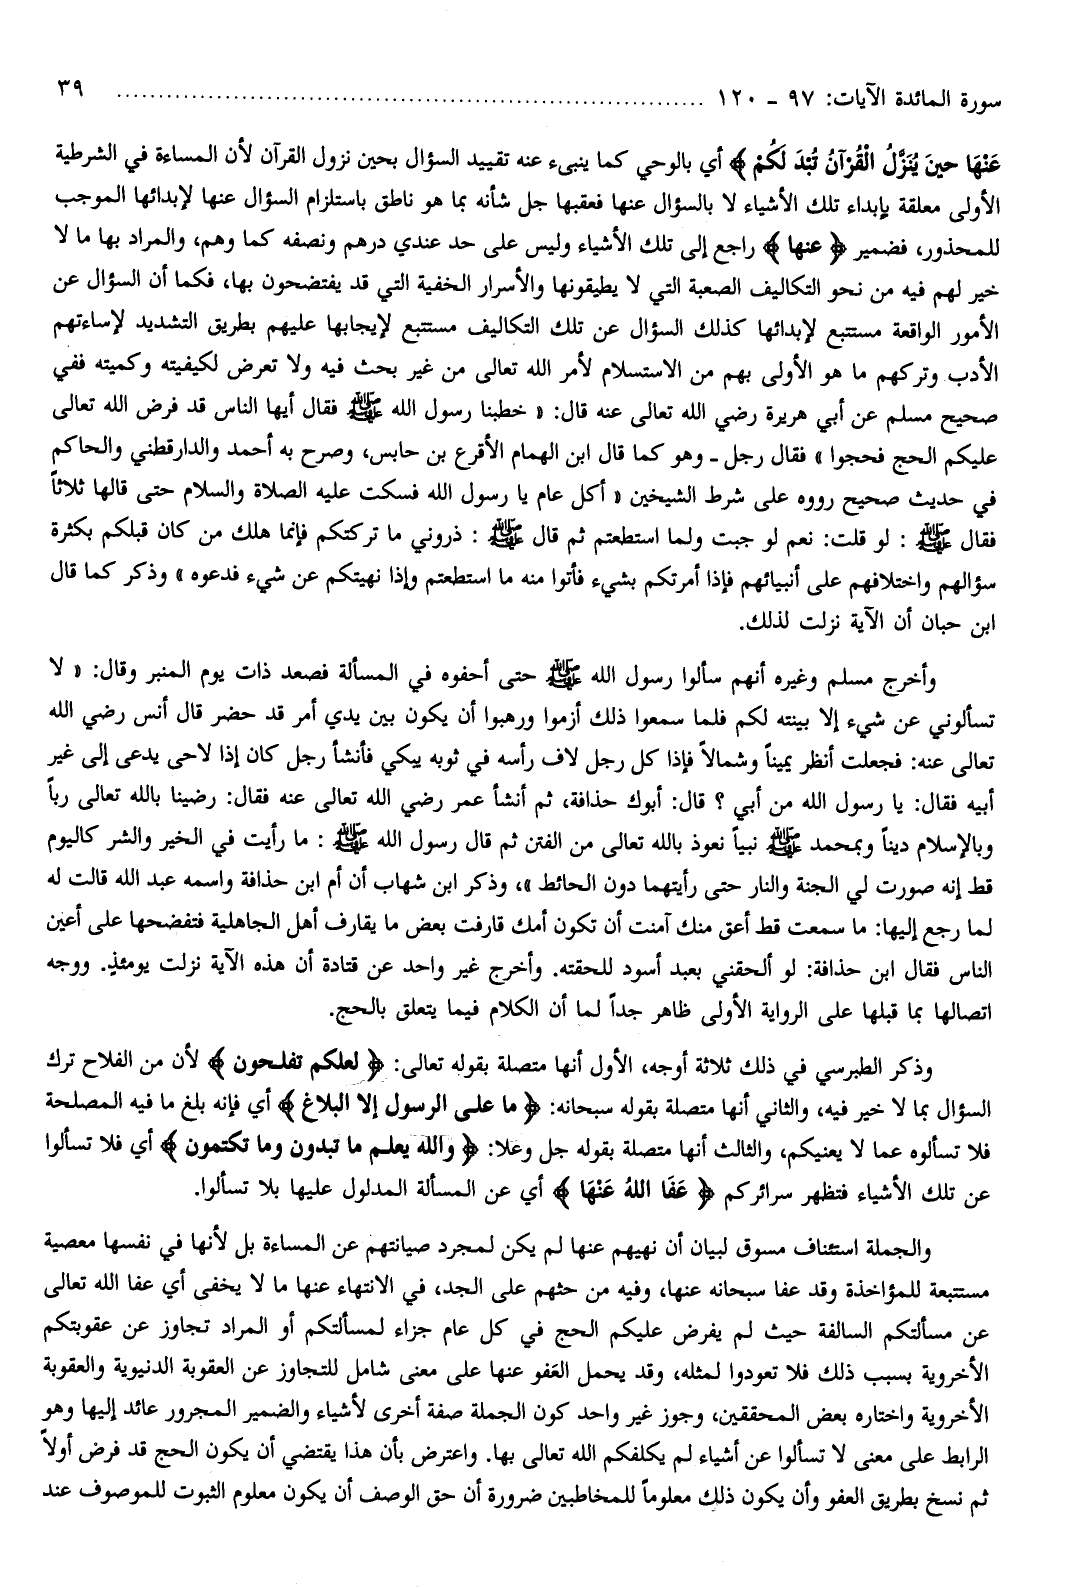 سورة المائدة الآيات: ٩٧ ـ ١٢٠ ........................................................................ ٣٩
عَنْهَا حِينَ يُنَزَّلُ الْقُرْآنُ تُبْدَ لَكُمْ ﴾ أي بالوحي كما ينبىء عنه تقييد السؤال بحين نزول القرآن لأن المساءة في الشرطية
الأولى معلقة بإبداء تلك الأشياء لا بالسؤال عنها فعقبها جل شأنه بما هو ناطق باستلزام السؤال عنها لإبدائها الموجب
للمحذور، فضمير ﴿ عنها ﴾ راجع إلى تلك الأشياء وليس على حد عندي درهم ونصفه كما وهم، والمراد بها ما لا
خير لهم فيه من نحو التكاليف الصعبة التي لا يطيقونها والأسرار الخفية التي قد يفتضحون بها، فكما أن السؤال عن
الأمور الواقعة مستتبع لإبدائها كذلك السؤال عن تلك التكاليف مستتبع لإيجابها عليهم بطريق التشديد لإساءتهم
الأدب وتركهم ما هو الأولى بهم من الاستسلام لأمر الله تعالى من غير بحث فيه ولا تعرض لكيفيته وكميته ففي
صحيح مسلم عن أبي هريرة رضي الله تعالى عنه قال: « خطبنا رسول الله ﷺ فقال أيها الناس قد فرض الله تعالى
عليكم الحج فحجوا » فقال رجل ـ وهو كما قال ابن الهمام الأقرع بن حابس، وصرح به أحمد والدارقطني والحاكم
في حديث صحيح رووه على شرط الشيخين « أكل عام يا رسول الله فسكت عليه الصلاة والسلام حتى قالها ثلاثاً
فقال ﷺ : لو قلت: نعم لو جبت ولما استطعتم ثم قال ﷺ : ذروني ما تركتكم فإنما هلك من كان قبلكم بكثرة
سؤالهم واختلافهم على أنبيائهم فإذا أمرتكم بشيء فأتوا منه ما استطعتم وإذا نهيتكم عن شيء فدعوه » وذكر كما قال
ابن حبان أن الآية نزلت لذلك.
وأخرج مسلم وغيره أنهم سألوا رسول الله ﷺ حتى أحفوه في المسألة فصعد ذات يوم المنبر وقال: « لا
تسألوني عن شيء إلا بينته لكم فلما سمعوا ذلك أزموا ورهبوا أن يكون بين يدي أمر قد حضر قال أنس رضي الله
تعالى عنه: فجعلت أنظر يميناً وشمالاً فإذا كل رجل لاف رأسه في ثوبه يبكي فأنشأ رجل كان إذا لاحى يدعى إلى غير
أبيه فقال: يا رسول الله من أبي ؟ قال: أبوك حذافة، ثم أنشأ عمر رضي الله تعالى عنه فقال: رضينا بالله تعالى رباً
وبالإسلام ديناً وبمحمد ﷺ نبياً نعوذ بالله تعالى من الفتن ثم قال رسول الله ﷺ : ما رأيت في الخير والشر كاليوم
قط إنه صورت لي الجنة والنار حتى رأيتهما دون الحائط »، وذكر ابن شهاب أن أم ابن حذافة واسمه عبد الله قالت له
لما رجع إليها: ما سمعت قط أعق منك آمنت أن تكون أمك قارفت بعض ما يقارف أهل الجاهلية فتفضحها على أعين
الناس فقال ابن حذافة: لو ألحقني بعبد أسود للحقته. وأخرج غير واحد عن قتادة أن هذه الآية نزلت يومئذٍ. ووجه
اتصالها بما قبلها على الرواية الأولى ظاهر جداً لما أن الكلام فيما يتعلق بالحج.
وذكر الطبرسي في ذلك ثلاثة أوجه، الأول أنها متصلة بقوله تعالى: ﴿ لعلكم تفلحون ﴾ لأن من الفلاح ترك
السؤال بما لا خير فيه، والثاني أنها متصلة بقوله سبحانه: ﴿ ما على الرسول إلا البلاغ ﴾ أي فإنه بلغ ما فيه المصلحة
فلا تسألوه عما لا يعنيكم، والثالث أنها متصلة بقوله جل وعلا: ﴿ والله يعلم ما تبدون وما تكتمون ﴾ أي فلا تسألوا
عن تلك الأشياء فتظهر سرائركم ﴿ عَفَا اللهُ عَنْهَا ﴾ أي عن المسألة المدلول عليها بلا تسألوا.
والجملة استئناف مسوق لبيان أن نهيهم عنها لم يكن لمجرد صيانتهم عن المساءة بل لأنها في نفسها معصية
مستتبعة للمؤاخذة وقد عفا سبحانه عنها، وفيه من حثهم على الجد، في الانتهاء عنها ما لا يخفى أي عفا الله تعالى
عن مسألتكم السالفة حيث لم يفرض عليكم الحج في كل عام جزاء لمسألتكم أو المراد تجاوز عن عقوبتكم
الأخروية بسبب ذلك فلا تعودوا لمثله، وقد يحمل العَفو عنها على معنى شامل للتجاوز عن العقوبة الدنيوية والعقوبة
الأخروية واختاره بعض المحققين، وجوز غير واحد كون الجملة صفة أخرى لأشياء والضمير المجرور عائد إليها وهو
الرابط على معنى لا تسألوا عن أشياء لم يكلفكم الله تعالى بها. واعترض بأن هذا يقتضي أن يكون الحج قد فرض أولاً
ثم نسخ بطريق العفو وأن يكون ذلك معلوماً للمخاطبين ضرورة أن حق الوصف أن يكون معلوم الثبوت للموصوف عند